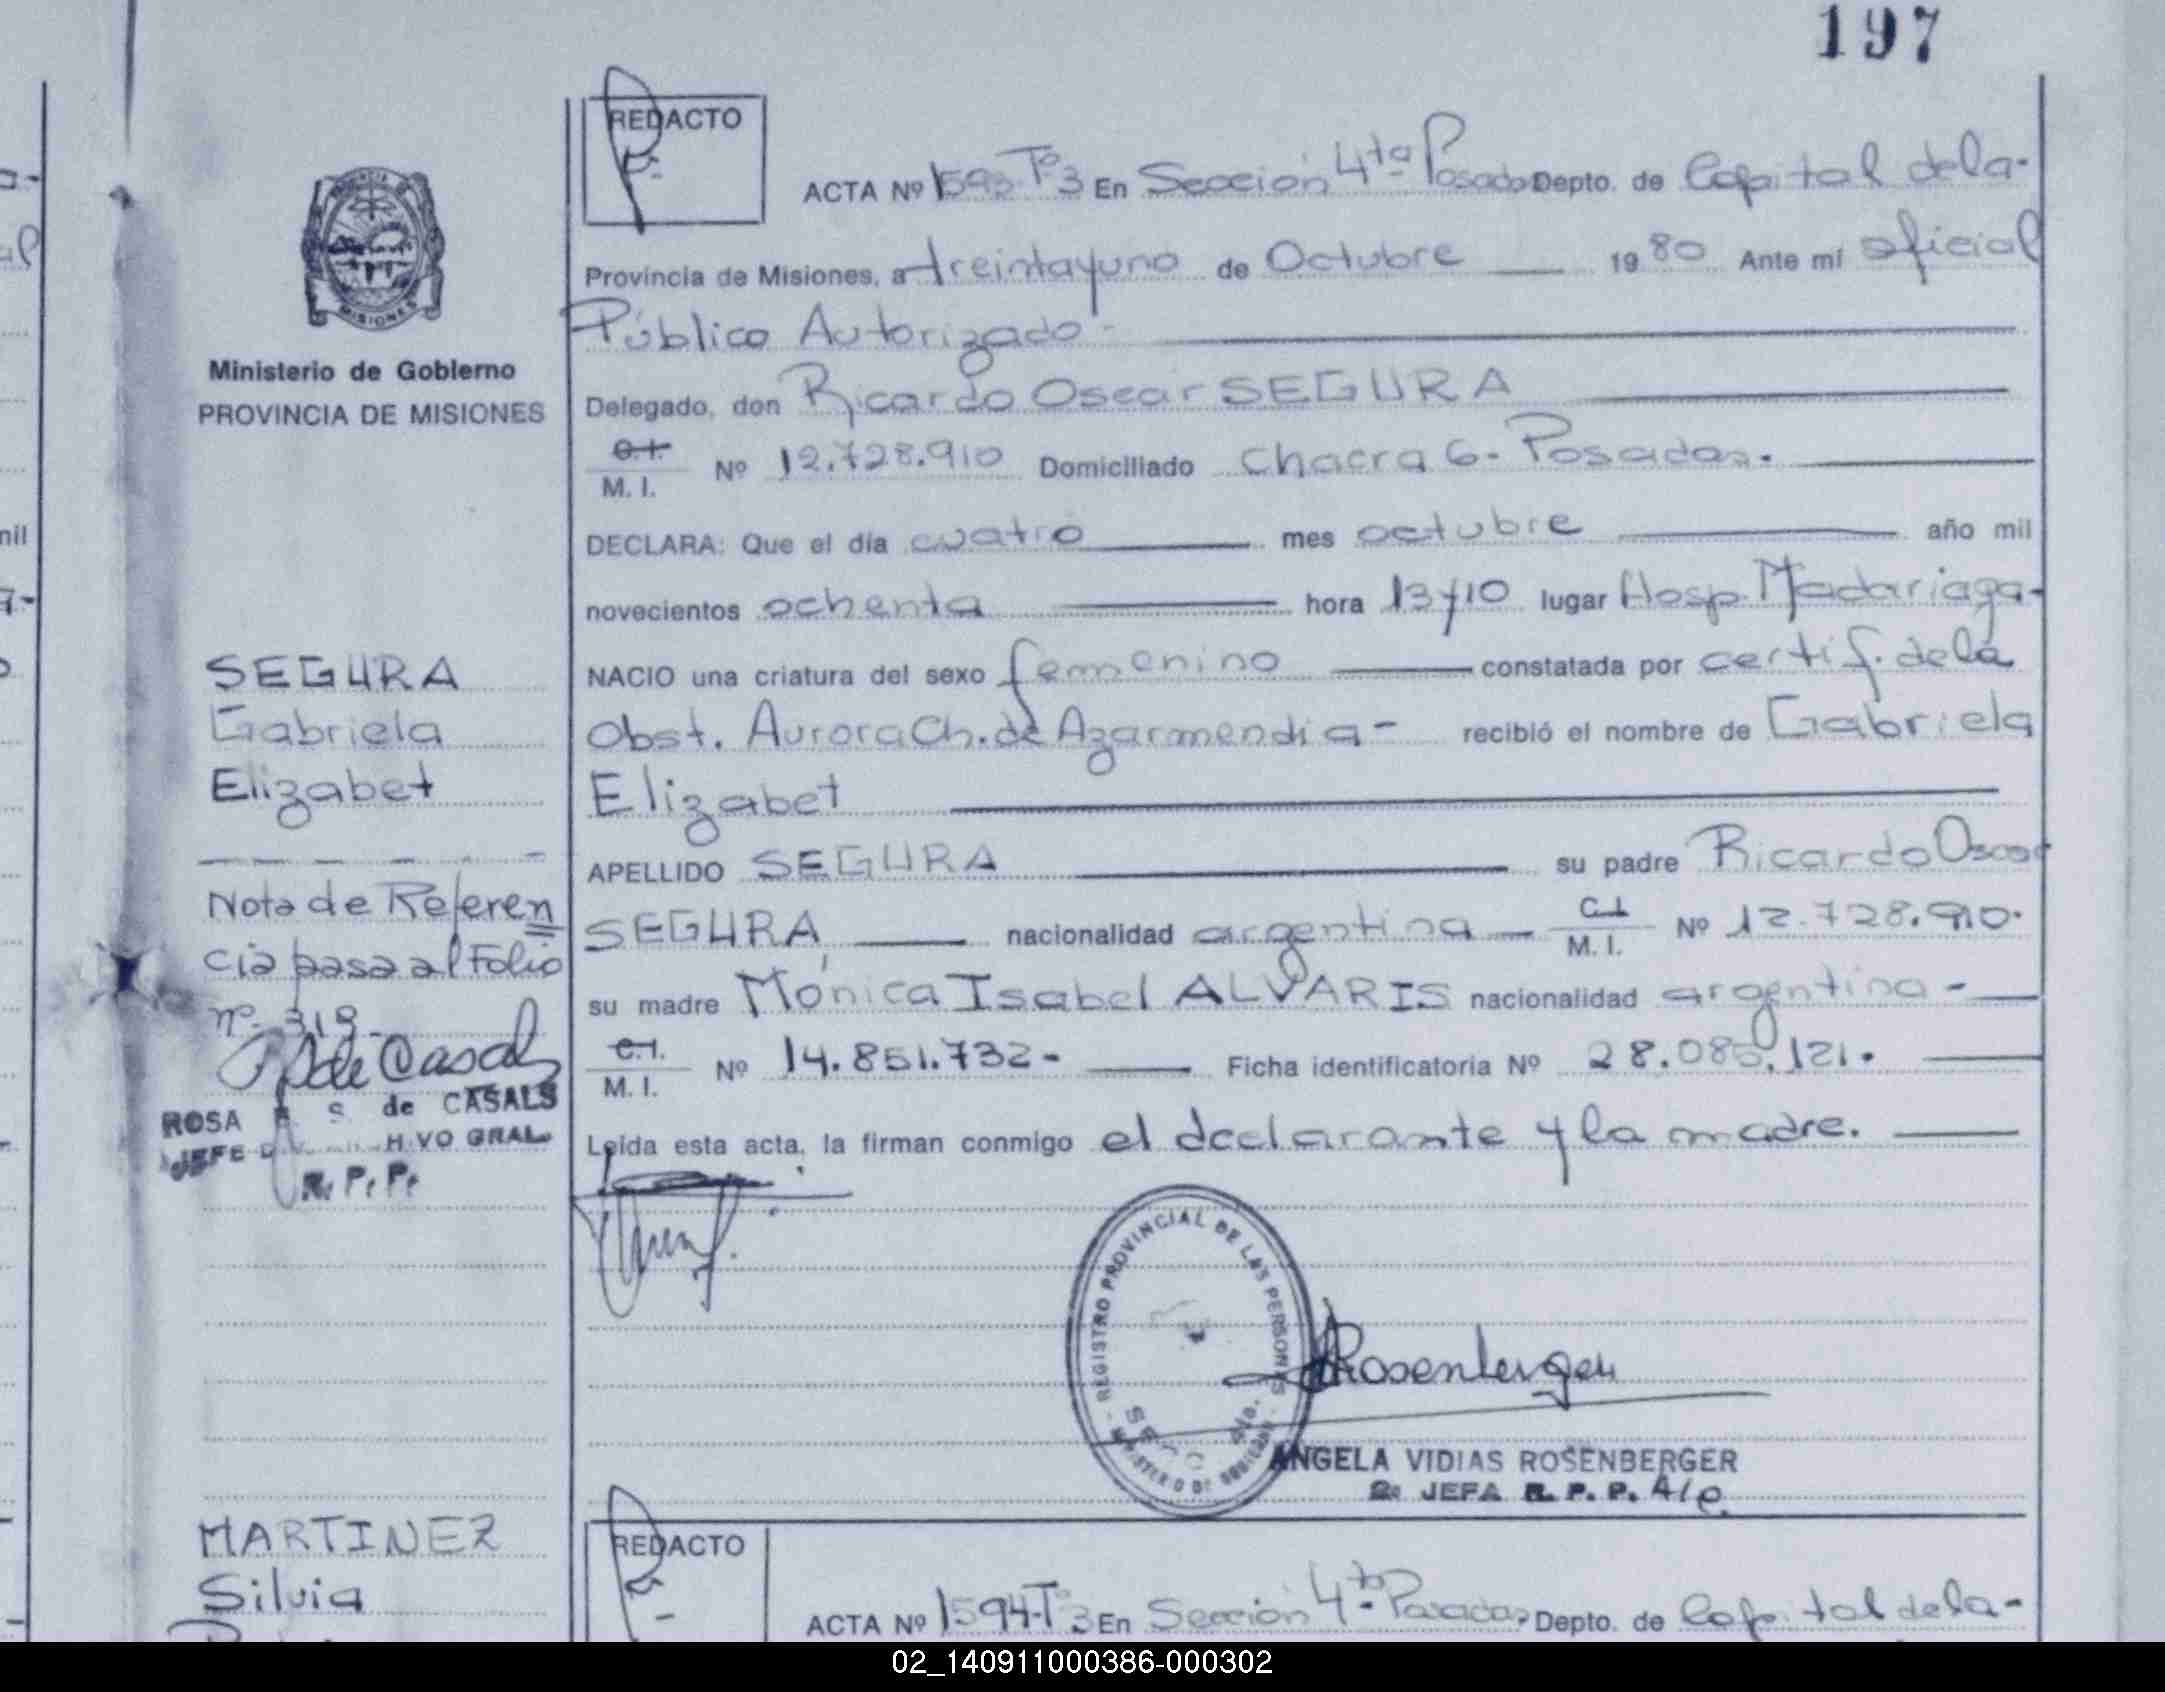 197
REDACTO
ACTA Nº 1593 Tº 3 En Sección 4ta Posadas Depto. de Capital de la-
Provincia de Misiones, a treinta y uno de Octubre 1980 Ante mí oficial
Público Autorizado-
Delegado, don Ricardo Oscar SEGURA
C.I. M. I. Nº 12.728.910 Domiciliado Chacra 6- Posadas.
DECLARA: Que el día cuatro mes octubre año mil
novecientos ochenta hora 13 y 10 lugar Hosp. Madariaga-
NACIO una criatura del sexo femenino constatada por certif. de la
Obst. Aurora Ch. de Azarmendia- recibió el nombre de Gabriela
Elizabet
APELLIDO SEGURA su padre Ricardo Oscar
SEGURA nacionalidad argentina C.I. M. I. Nº 12.728.910.
su madre Mónica Isabel ALVARIS nacionalidad argentina-
C.I. M. I. Nº 14.851.732- Ficha identificatoria Nº 28.085.121.
Leída esta acta, la firman conmigo el declarante y la madre.
REGISTRO PROVINCIAL DE LAS PERSONAS
Rosenberger
ANGELA VIDIAS ROSENBERGER
2ª JEFA R. P. P. A/c.
PROVINCIA DE
MISIONES
Ministerio de Gobierno
PROVINCIA DE MISIONES
SEGURA
Gabriela
Elizabet
Nota de Referen
cia pasa al Folio
nº 319-
de Casals
ROSA S. de CASALS
JEFE HIVO GRAL.
R. P. P.
MARTINEZ
Silvia
REDACTO
ACTA Nº 1594 Tº 3 En Sección 4ta Posadas Depto. de Capital de la-
nil
02_140911000386-000302